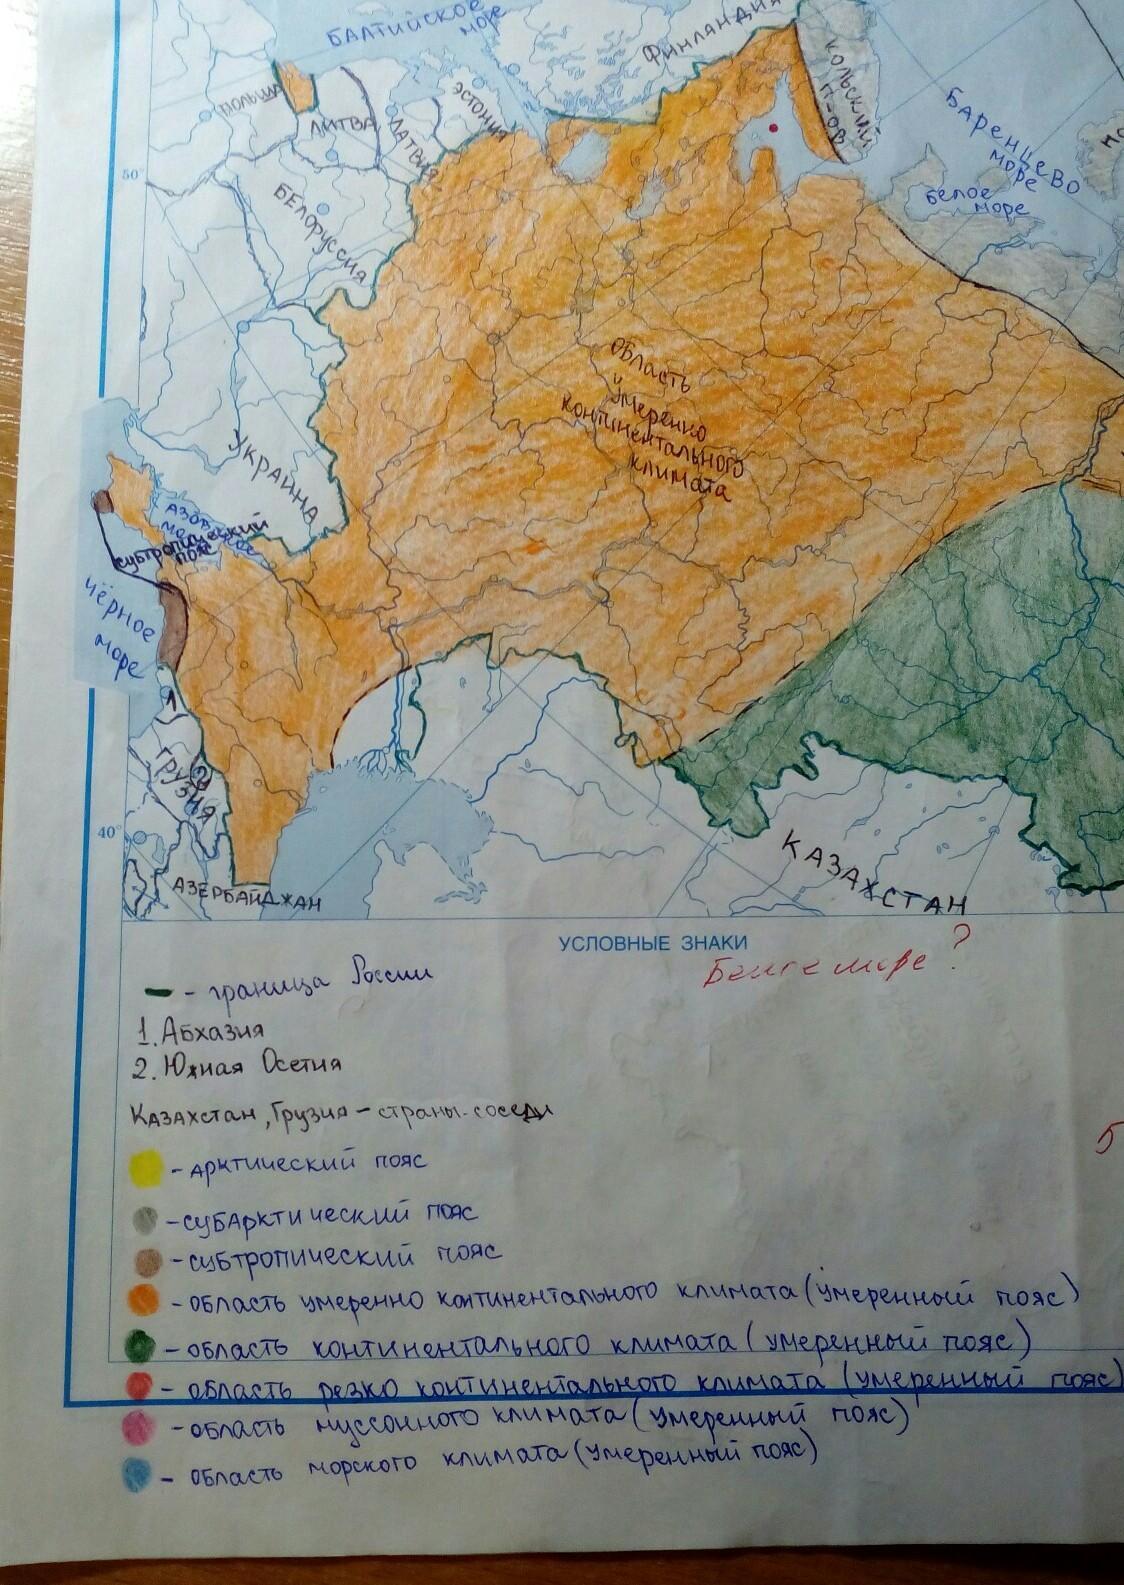 БАЛТИЙСКОЕ
море
ФИНЛАНДИЯ
КОЛЬСКИЙ
П-ОВ
БАРЕНЦЕВО
море
Белое
море
ПОЛЬША
ЛИТВА
ЛАТВИЯ
ЭСТОНИЯ
50°
БЕЛОРУССИЯ
ОБЛАСТЬ
умеренно
континентального
климата
УКРАИНА
АЗОВСКОЕ
море
субтропический
пояс
Чёрное
море
1
ГРУЗИЯ
2
40°
АЗЕРБАЙДЖАН
КАЗАХСТАН
УСЛОВНЫЕ ЗНАКИ
Белое море?
- граница России
1. Абхазия
2. Южная Осетия
Казахстан, Грузия - страны-соседи
5
- арктический пояс
- субарктический пояс
- субтропический пояс
- область умеренно континентального климата (умеренный пояс)
- область континентального климата (умеренный пояс)
- область резко континентального климата (умеренный пояс)
- область муссонного климата (умеренный пояс)
- область морского климата (умеренный пояс)